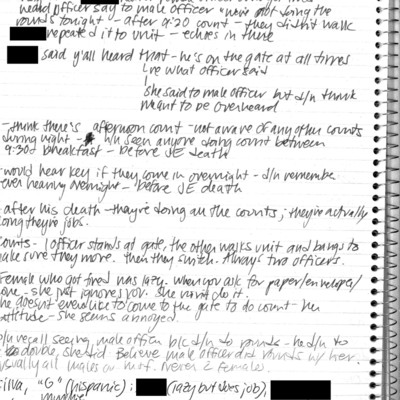 heard officer say to male officer "never not doing the
rounds tonight - after 9:20 count - they didn't walk
repeated it to unit - echoes in there
said y'all heard that - he's on the gate at all times
re what officer said
she said to male officer but d/n think
meant to be overheard
- think there's afternoon count - not aware of any other counts
during night - h/n seen anyone doing count between
9:30 & breakfast - before JE death
would hear key if they come in overnight - d/n remember
ever hearing overnight - before JE death
- after his death - they're doing all the counts; they're actually
doing they're jobs.
counts - 1 officer stands at gate, the other walks unit and bangs to
make sure they move. then they switch. Always two officers.
Female who got fired was lazy. when you ask for paper/envelopes/
- she just ignores you. She won't do it.
she doesn't even like to come to the gate to do count - her
attitude - she seems annoyed.
d/n recall seeing male officer b/c d/n do rounds - had/n to
double, she did. Believe male officer did rounds w/ her.
usually all males on unit. never 2 females.
Silva, "G" (hispanic); (lazy but does job),